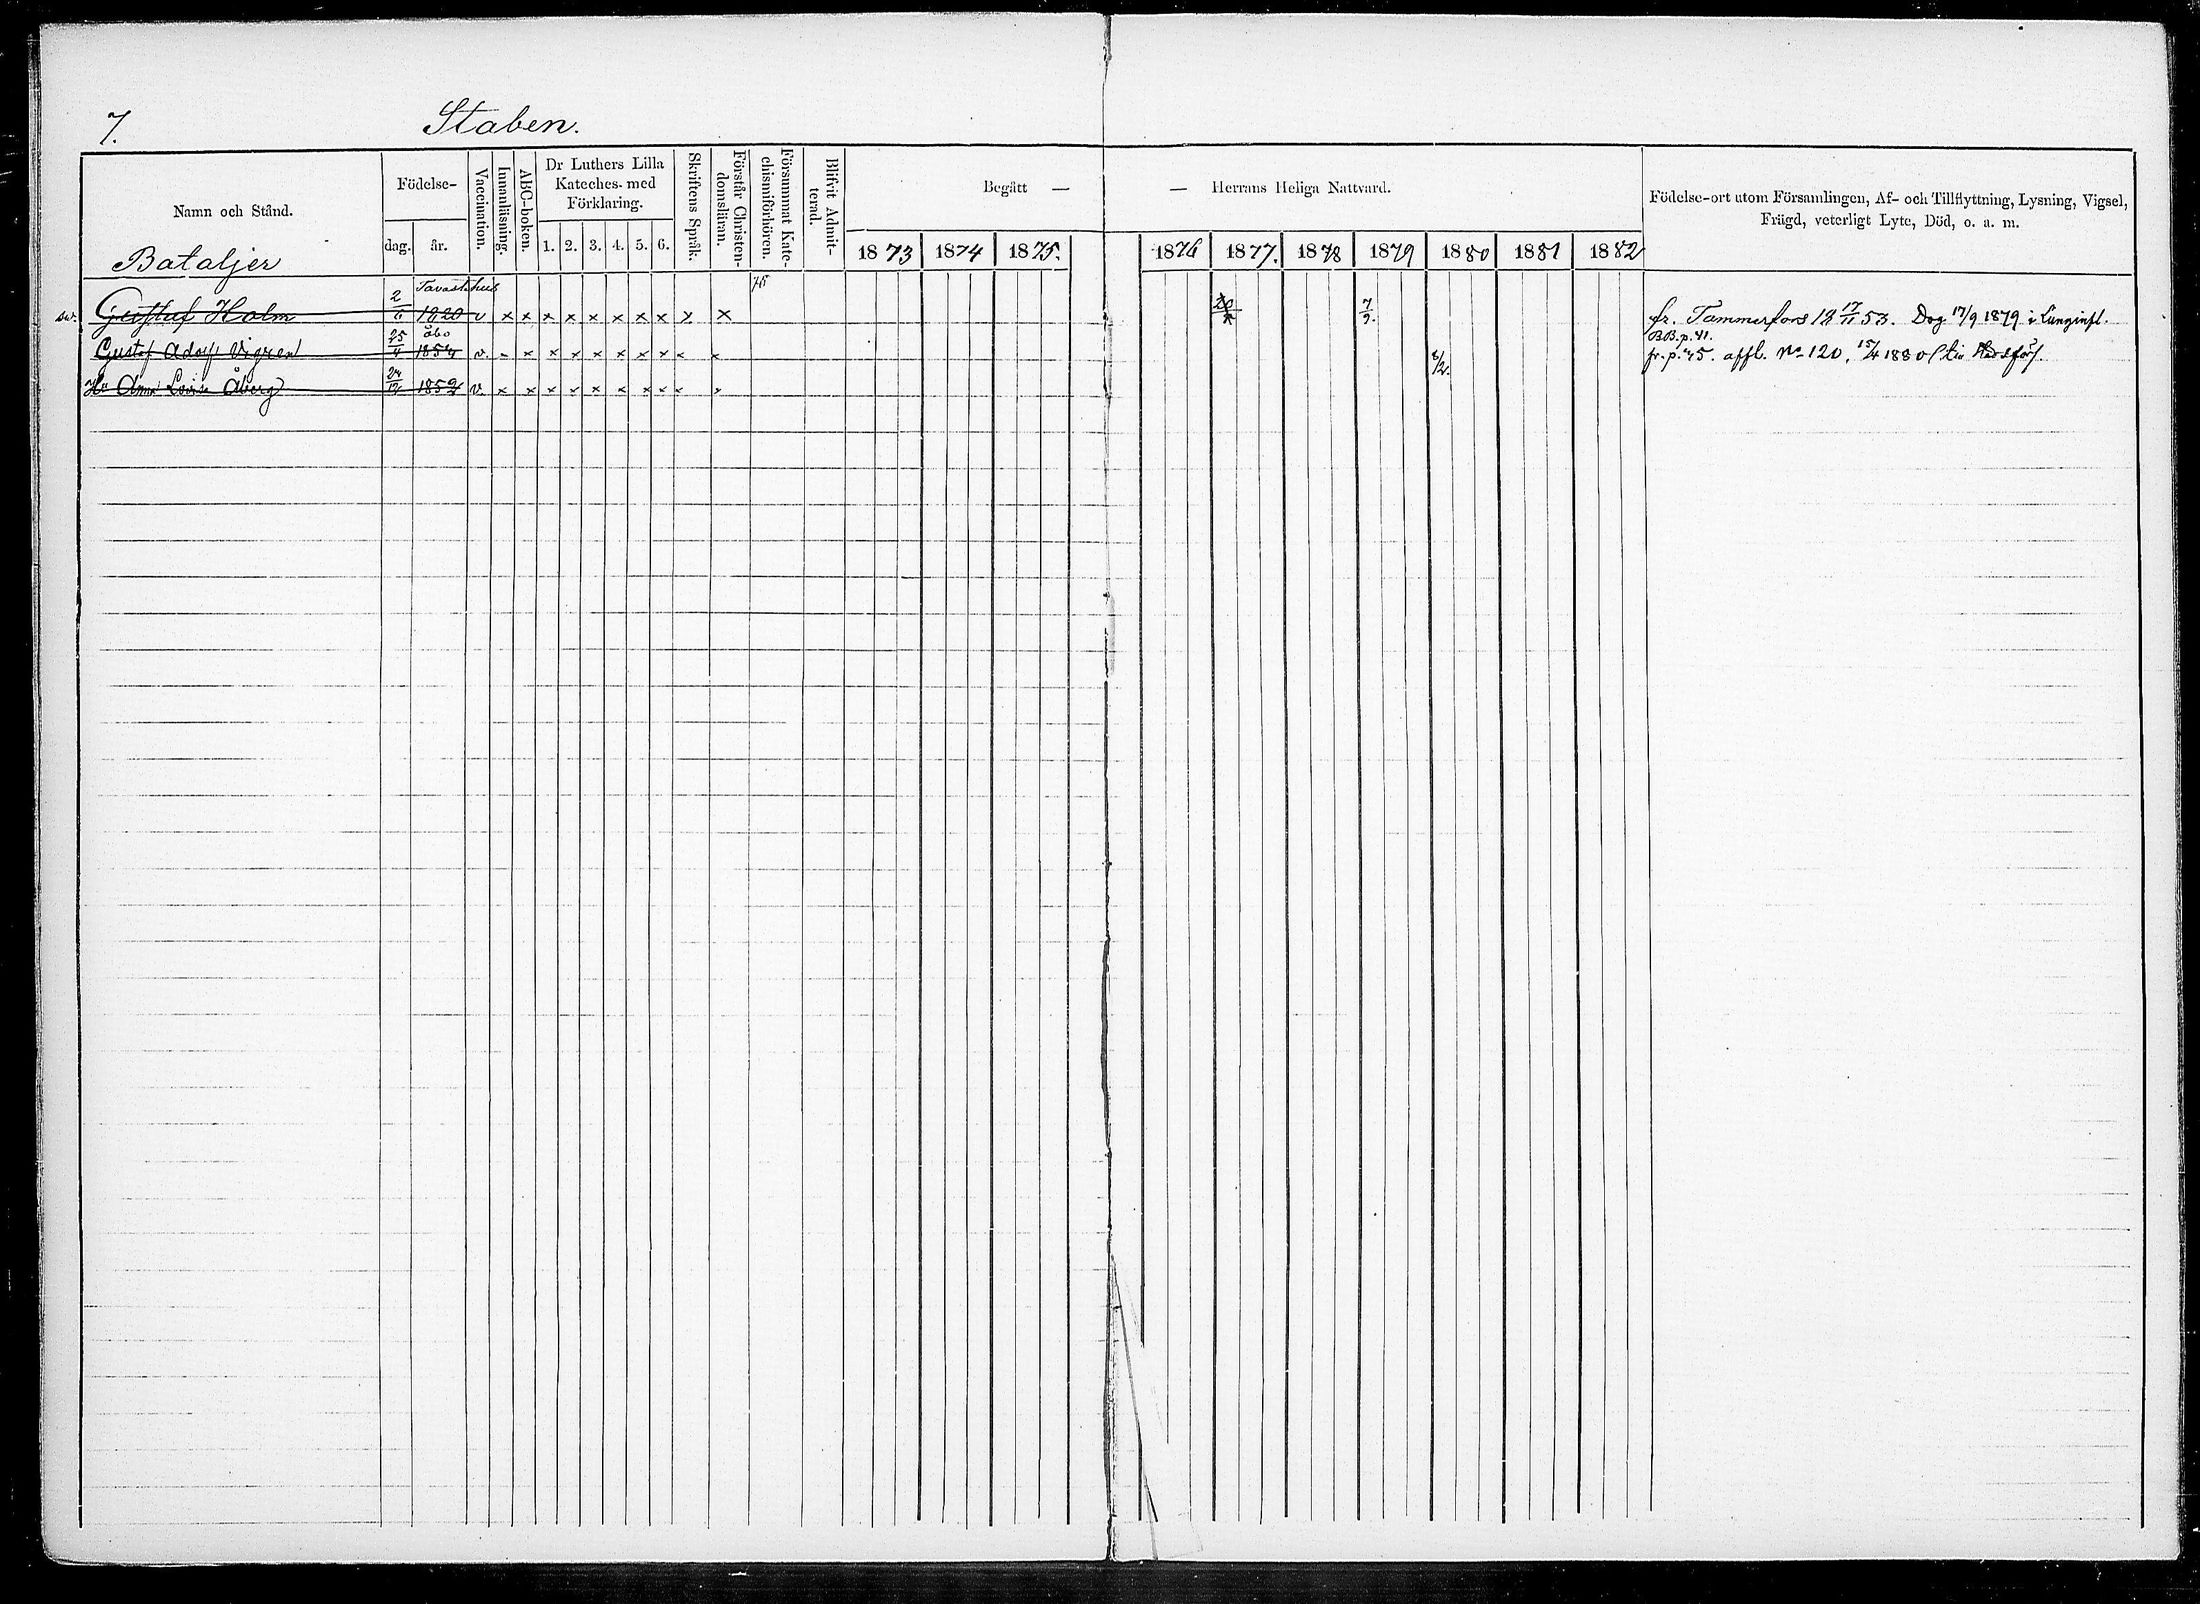 7.
Staben.
Namn och Stånd.
Födelse-
dag. år.
Vaccination.
Innanläsning.
ABC-boken.
Dr Luthers Lilla Kateches- med Förklaring.
1. 2. 3. 4. 5. 6.
Skriftens Språk.
Förstår Christen-domsläran.
Försummat Kate-chismiförhören.
Blifvit Admit-terad.
Begått —
— Herrans Heliga Nattvard.
1873 1874 1875. 1876 1877. 1878 1879 1880 1881 1882
Födelse-ort utom Församlingen, Af- och Tillflyttning, Lysning, Vigsel,
Frägd, veterligt Lyte, Död, o. a. m.
Bataljer
Tavastehus 75
Gustaf Holm 2/6 1820 v x x x x x x x x x x 7/9. fr. Tammerfors 18 17/11 53. Dog 17/9 1879 i Lunginfl.
Åbo BB. p. 41.
Gustaf Adolf Vigren 25/4 1854 v. - x x x x x x x x x 8/2. fr. p. 45. affl. No 120. 15/4 1880
Hu Anna Lovisa Åberg 24/12 1852 v. x x x x x x x x x x